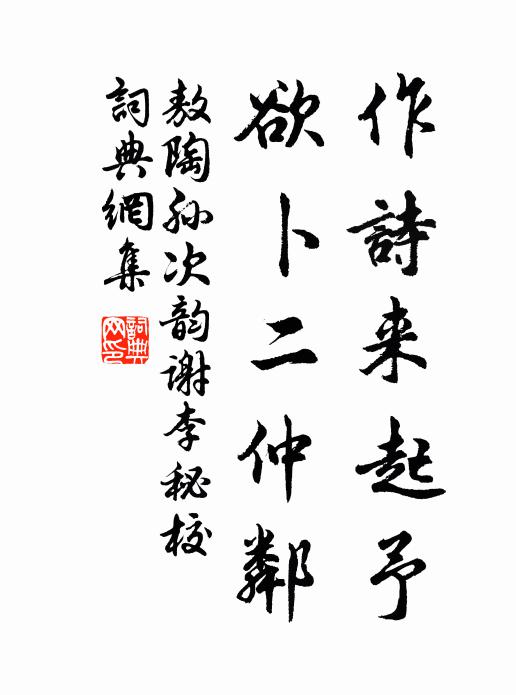 作詩来起予
欲卜二仲鄰
敖陶孫次韵谢李秘校
詞典網集
詞典网印